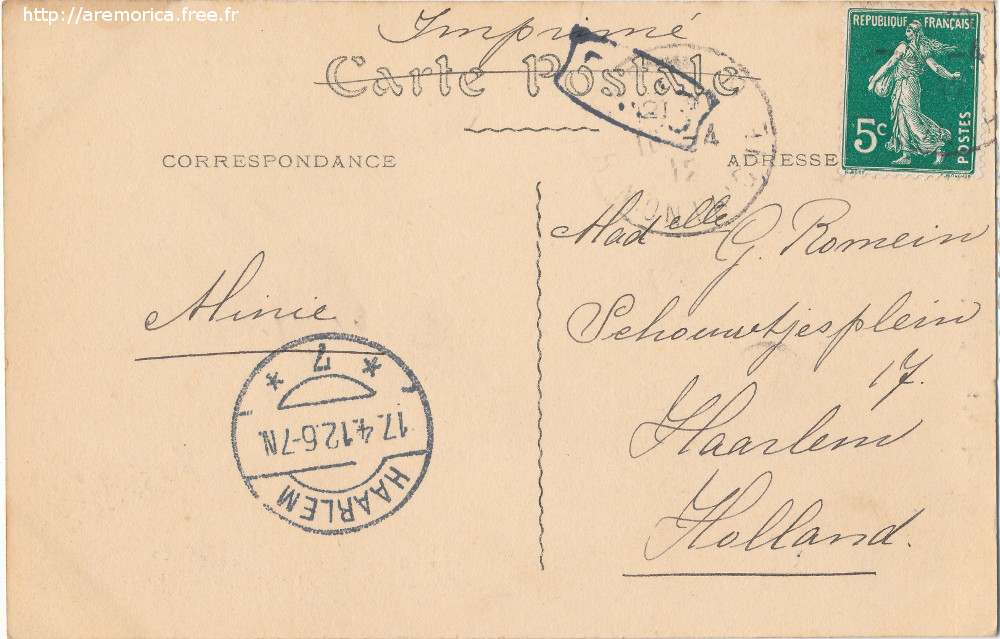 http://aremorica.free.fr
Imprimé
Carte Postale
REPUBLIQUE FRANÇAISE
5c
POSTES
CORRESPONDANCE
ADRESSE
Madelle G. Romein
Schouwtjesplein
17.
Haarlem
Holland.
Minie.
7
17.4.12.6-7N.
HAARLEM